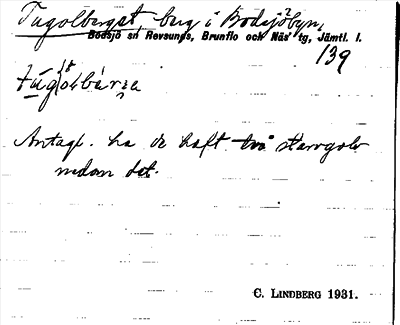 Tugolberget, berg i Bodsjöbyn,
Bodsjö sn Revsunds, Brunflo och Näs tg, Jämtl. l.
139
Antagl. ha de haft två starrgolv
nedan det.
C. LINDBERG 1931.